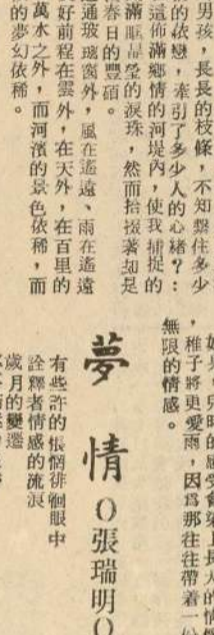 男孩，長長的枝條，不知繫住多少
的依戀，牽引了多少人的心緒？：
這佈滿鄉情的河堤內，使我捕捉的
滿眶晶瑩的淚珠，然而拾掇著却是
春日的豐碩。
透通玻璃窗外，風在遙遠、雨在遙遠
美好前程在雲外，在天外，在百里的
萬水之外，而河濱的景色依稀，而
的夢幻依稀。
，稚子將更愛雨，因爲那往往帶着一份
無限的情感。
夢情
○張瑞明○
有些許的悵惘徘徊眼中
詮釋者情感的流浪
歲月的變遷